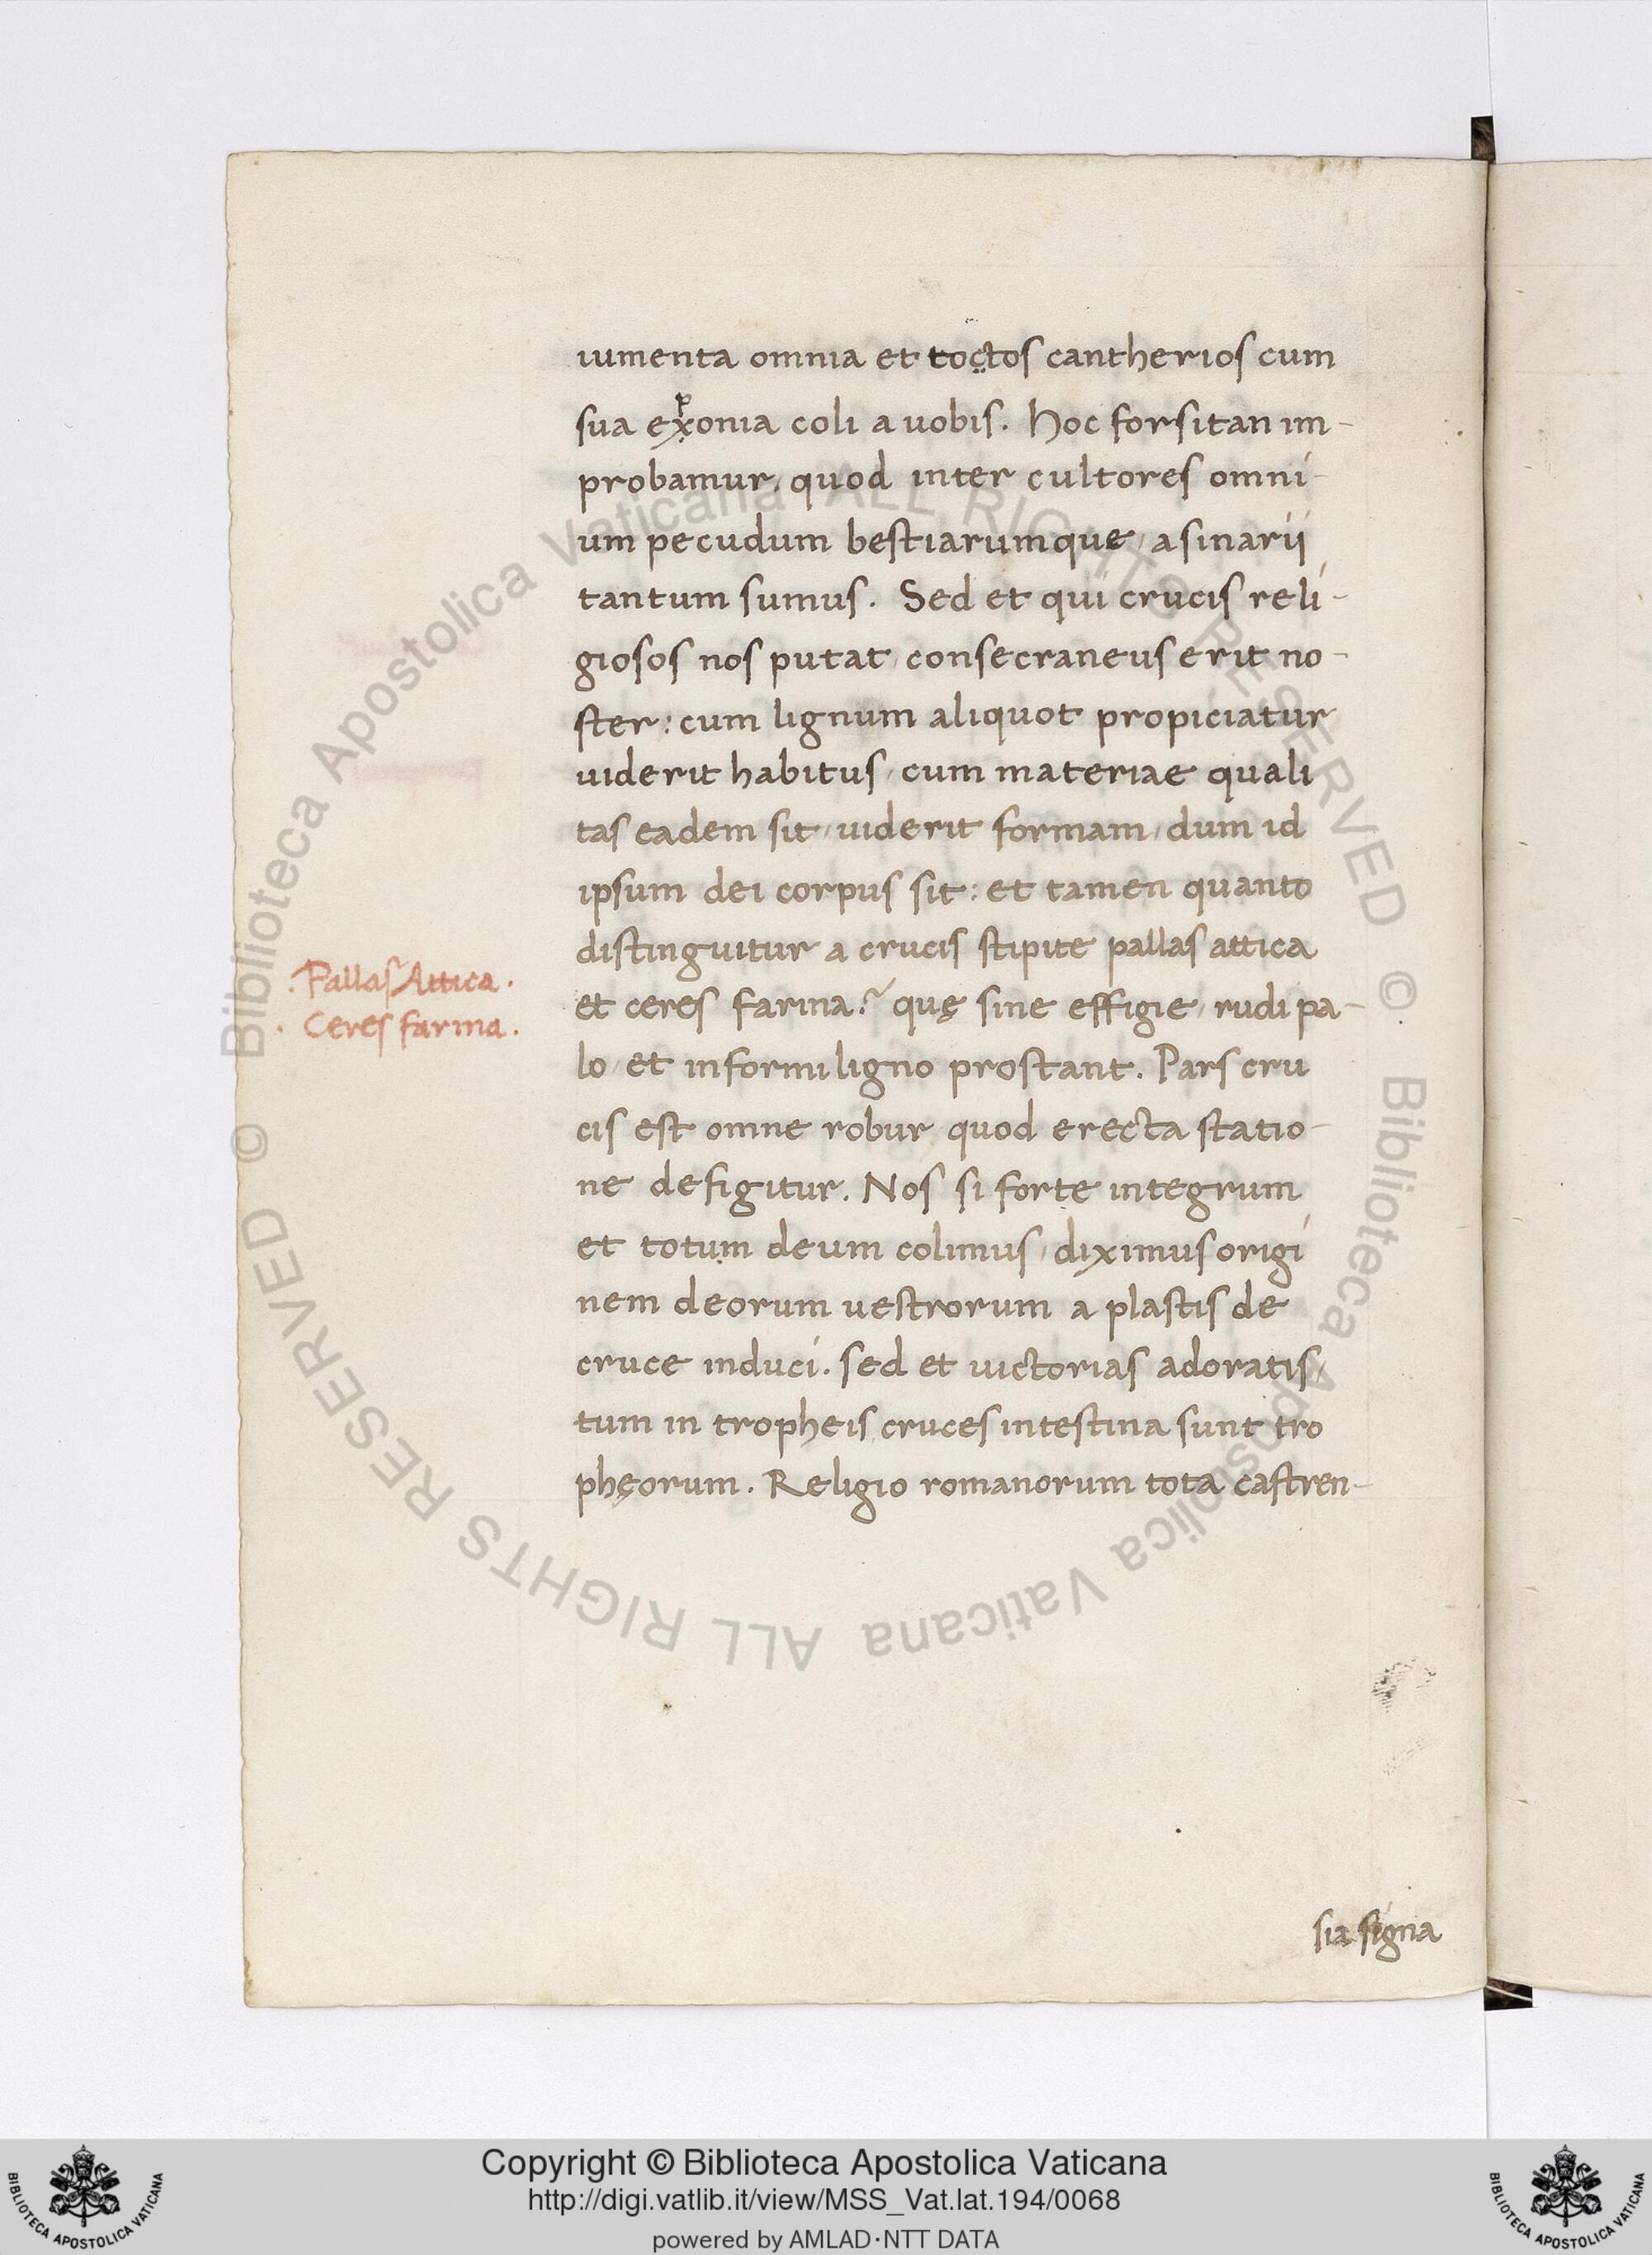 iumenta omnia et toctos cantherios cum
p
sua exonia coli a uobis. Hoc forsitan im-
probamur, quod inter cultores omni-
um pecudum bestiarumque, asinarii
tantum sumus. Sed et qui crucis reli-
giosos nos putat consecraneus erit no-
ster: cum lignum aliquot propiciatur
uiderit habitus, cum materiae quali
tas eadem sit, uiderit formam, dum id
ipsum dei corpus sit: et tamen quanto
distinguitur a crucis stipite pallas attica
.Pallas Attica.
et ceres farina? quę sine effigie, rudi pa-
. Ceres farina.
lo, et informi ligno prostant. Pars cru
cis est omne robur quod erecta statio-
ne defigitur. Nos si forte integrum
et totum deum colimus, diximus origi
nem deorum uestrorum a plastis de
cruce induci. sed et uictorias adoratis,
tum in tropheis cruces intestina sunt tro
phęorum. Religio romanorum tota castren-
sia signa
© Biblioteca Apostolica Vaticana ALL RIGHTS RESERVED © Biblioteca Apostolica Vaticana ALL RIGHTS RESERVED
Copyright © Biblioteca Apostolica Vaticana
http://digi.vatlib.it/view/MSS_Vat.lat.194/0068
powered by AMLAD·NTT DATA
BIBLIOTECA APOSTOLICA VATICANA
BIBLIOTECA APOSTOLICA VATICANA